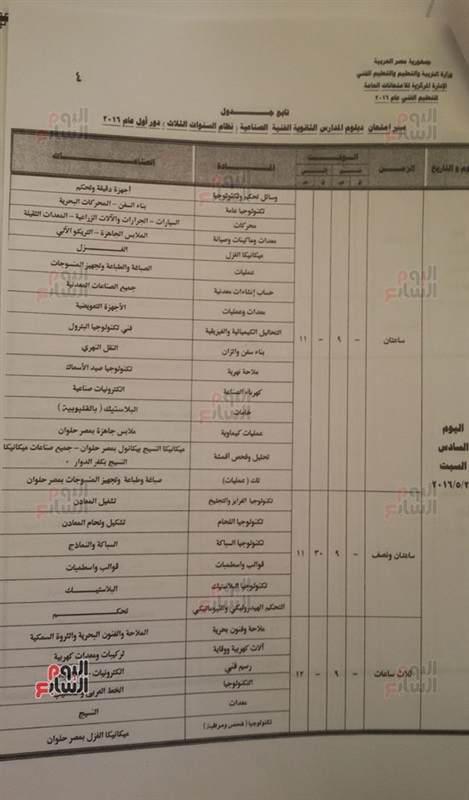 جمهورية مصر العربية
وزارة التربية والتعليم والتعليم الفني
الإدارة المركزية للامتحانات العامة
للتعليم الفني عام ٢٠١٦
٤
تابع جدول
سير امتحان دبلوم المدارس الثانوية الفنية الصناعية : نظام السنوات الثلاث : دور أول عام ٢٠١٦
اليوم و التاريخ الزمن المادة الصناعات
من إلى
ق س ق س
وسائل تحكم وتكنولوجيا أجهزة دقيقة وتحكم
تكنولوجيا عامة بناء السفن - المحركات البحرية
محركات السيارات - الجرارات والآلات الزراعية - المعدات الثقيلة
معدات وماكينات وصيانة الملابس الجاهزة - التريكو الآلي
ميكانيكا الغزل الغزل
عمليات الصباغة والطباعة وتجهيز المنسوجات
حساب إنشاءات معدنية جميع الصناعات المعدنية
معدات وعمليات الأجهزة التعويضية
ساعتان - ٩ - ١١ التحاليل الكيميائية والفيزيقية فني تكنولوجيا البترول
بناء سفن واتزان النقل النهري
ملاحة نهرية تكنولوجيا صيد الأسماك
كهرباء الصناعة الكترونيات صناعية
خامات البلاستيك ( بالقليوبية )
عمليات كيماوية ملابس جاهزة بمصر حلوان
تحليل وفحص أقمشة ميكانيكا النسيج بيكانول بمصر حلوان - جميع صناعات ميكانيكا
النسيج بكفر الدوار -
( عمليات ) صباغة وطباعة وتجهيز المنسوجات بمصر حلوان
اليوم
السادس
السبت
ساعتان ونصف - ٩ ٣٠ ١١
تكنولوجيا الفرايز والتجليخ تشغيل المعادن
تكنولوجيا اللحام تشكيل ولحام المعادن
تكنولوجيا السباكة السباكة والنماذج
قوالب واسطمبات قوالب واسطمبات
تكنولوجيا البلاستيك البلاستيك
التحكم الهيدروليكي والنيوماتيكي تحكم
ثلاث ساعات - ٩ - ١٢
ملاحة وفنون بحرية الملاحة والفنون البحرية والثروة السمكية
آلات كهربية ووقاية تركيبات ومعدات كهربية
رسم فني الكترونيات
التكنولوجيا الخط العربي
معدات النسيج
تكنولوجيا ميكانيكا الغزل بمصر حلوان
اليوم السابع